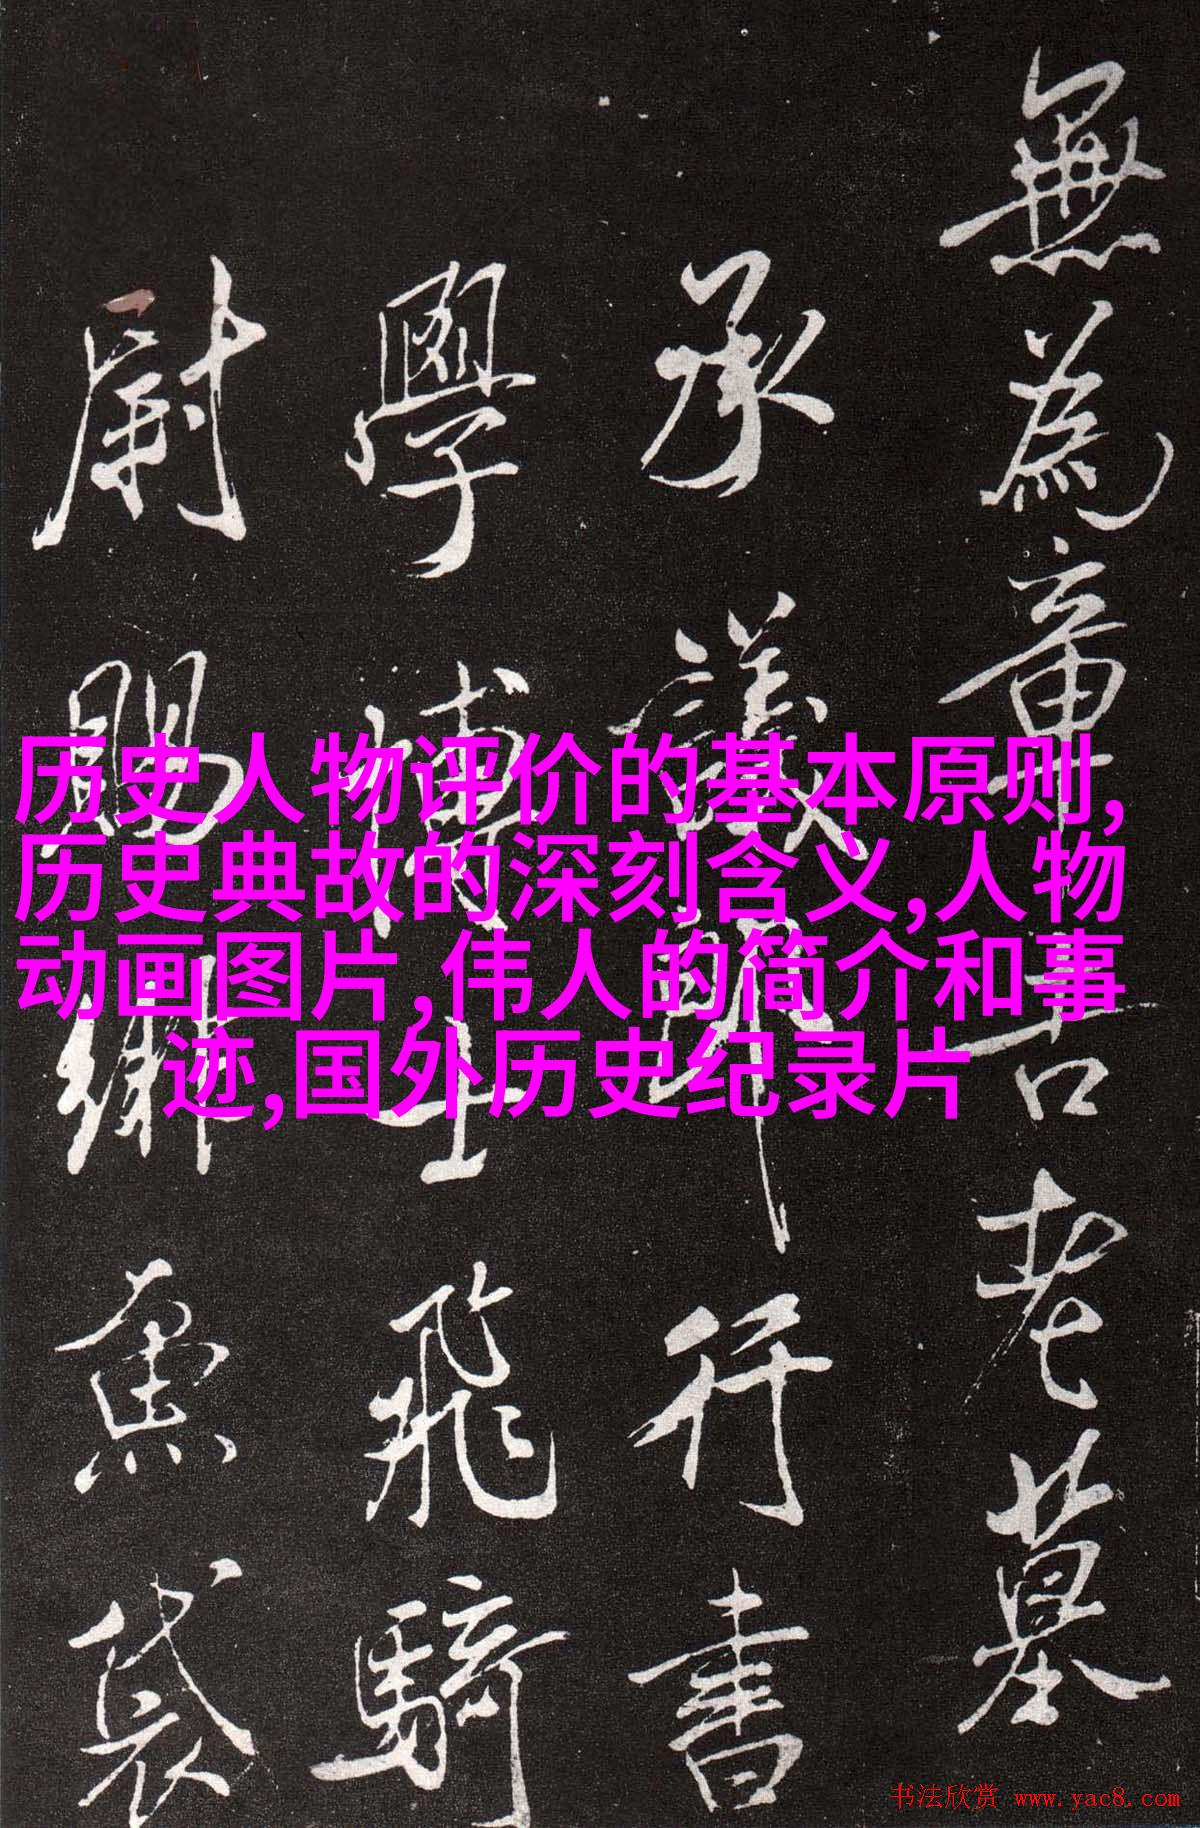 無為章吉老墓
承議郎行書
學博士飛騎
尉賜緋魚袋
历史人物评价的基本原则,
历史典故的深刻含义,人物
动画图片,伟人的简介和事
迹,国外历史纪录片
书法欣赏 www.yac8.com